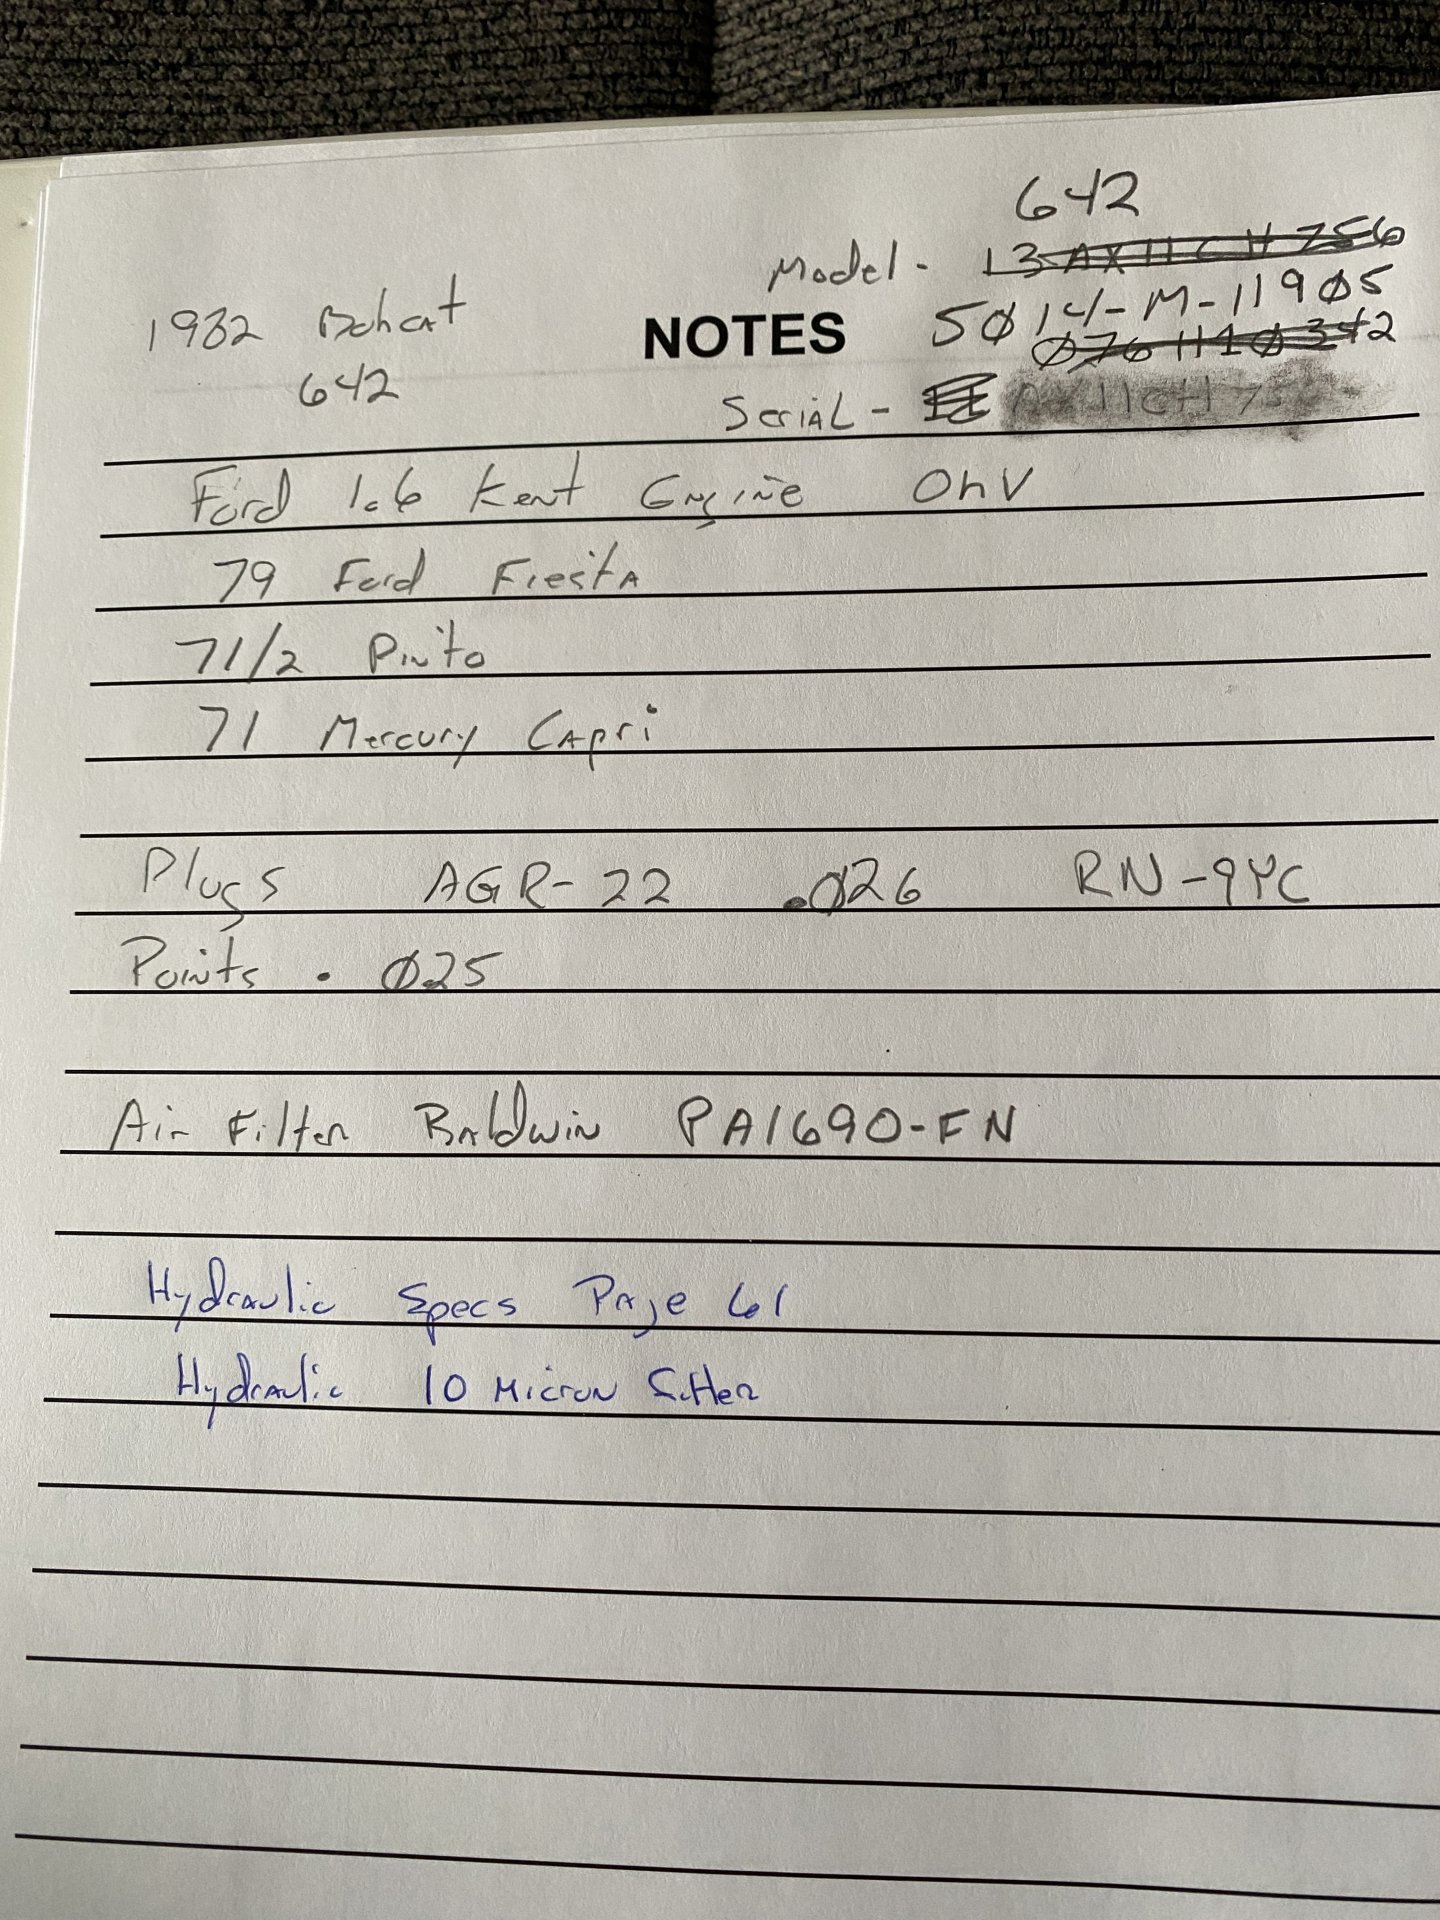 642
Model - 13AX11CH756
1982 Bobcat
NOTES
5Ø14-M-119Ø5
Ø76H1Ø342
642
Serial - AX11CH75
Ford 1.6 Kent Engine OhV
79 Ford Fiesta
71/2 Pinto
71 Mercury Capri
Plugs AGR-22 .Ø26 RN-9YC
Points .Ø25
Air Filter Baldwin PA1690-FN
Hydraulic Specs Page 61
Hydraulic 10 Micron Filter